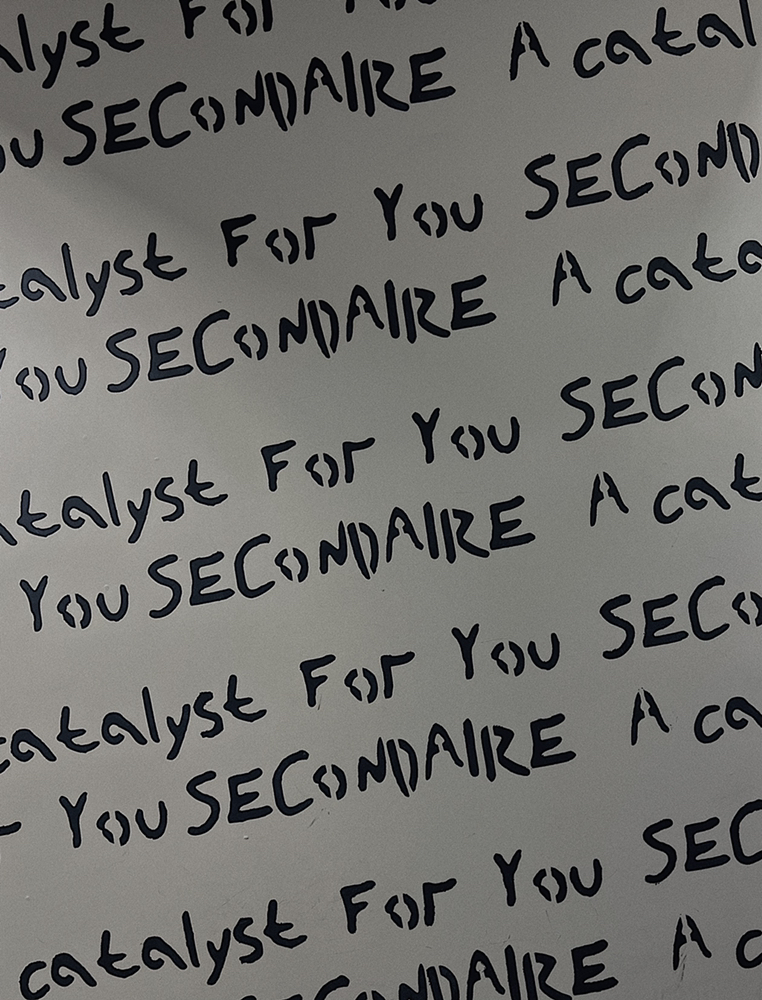 alyst For
ou SECONDAIRE A catal
talyst For You SECOND
You SECONDAIRE A cata
atalyst For You SECON
You SECONDAIRE A cat
catalyst For You SECO
r You SECONDAIRE A ca
catalyst For You SEC
SECONDAIRE A c